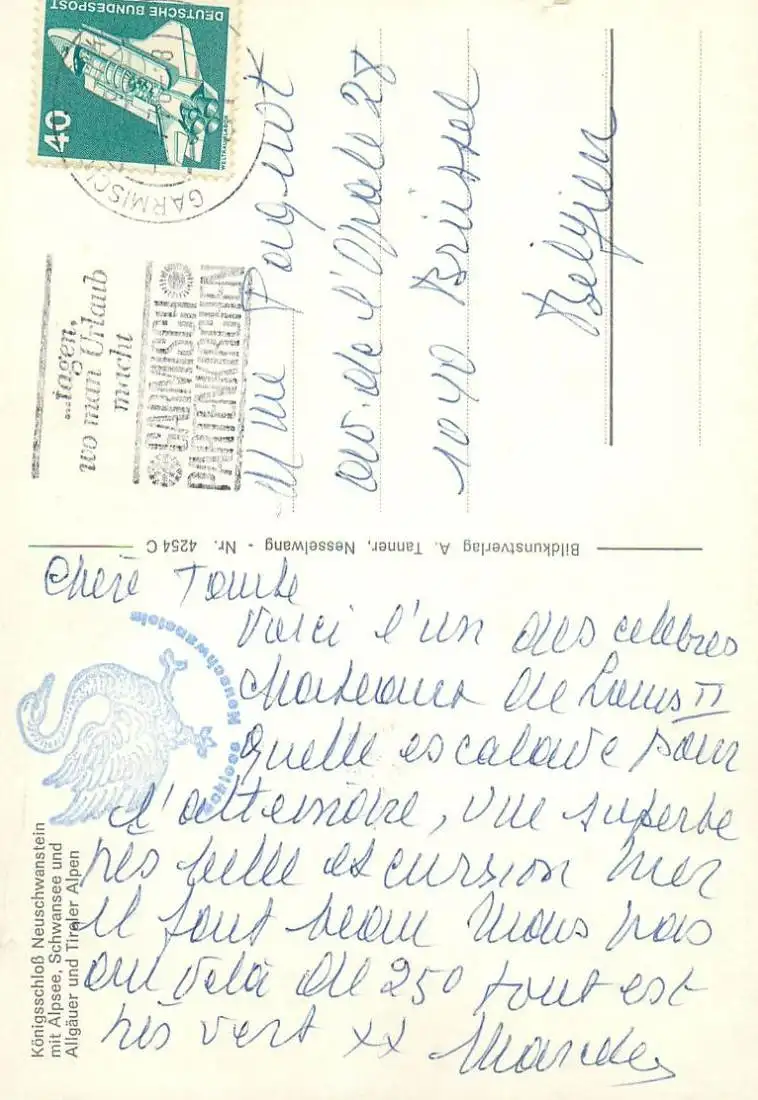 DEUTSCHE BUNDESPOST
40
WELTRAUMLABOR
GARMISCH
...tagen,
wo man Urlaub
macht
GARMISCH
PARTENKIRCHEN
Mme Paquot
av. de l'Opale 28
1040 Brüssel
Belgien
Bildkunstverlag A. Tanner, Nesselwang - Nr. 4254 C
Chère Tante
Voici l'un des celebres
chateaux de Louis II
quelle escalade pour
l'atteindre, vue superbe
très belle excursion hier
Il fait beau mais pas
au delà de 25° tout est
très vert xx
Schloss Neuschwanstein
Königsschloß Neuschwanstein
mit Alpsee, Schwansee und
Allgäuer und Tiroler Alpen